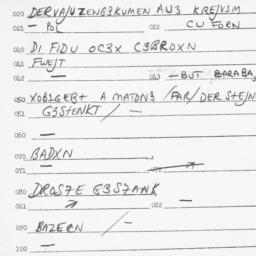 020 DERVAJUZENG3KUMEN AU3 KREJV1M
021 — POL 022 CU FORN
060 DI FIDU OC3X C3BROXN
FWEJT
062 — 063 —BUT BARABA,
050 XOB1GEBT A MATON3 /FAR/DER STEJN
051 G3STENKT / —
060 —
070 BADXN
071 —
080 DROS7E G3S7ANK
081 082 —
090 BAZERN / —
100 —